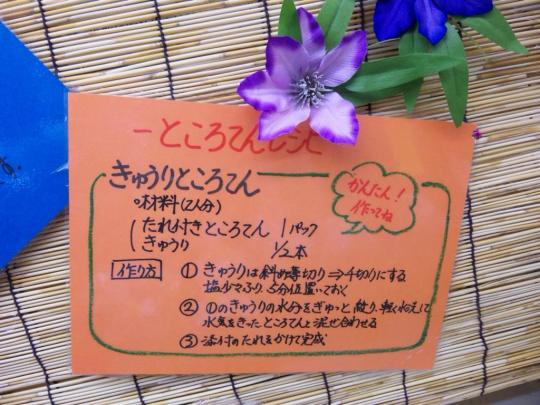 ーところてんレシピ
きゅうりところてん
かんたん!
作ってね
○材料(2人分)
たれ付きところてん 1パック
きゅうり 1/2本
作り方 ① きゅうりは斜め薄切り⇒千切りにする
塩少々ふり、5分位置いておく
② ①のきゅうりの水分をぎゅっと絞り、軽く
水気をきったところてんと混ぜ合わせる
③ 添付のたれをかけて完成
す。